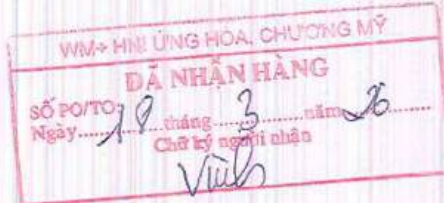 WM+ HNI ỨNG HÒA, CHƯƠNG MỸ
ĐÃ NHẬN HÀNG
SỐ PO/TO:
Ngày 19 tháng 3 năm 26
Chữ ký người nhận